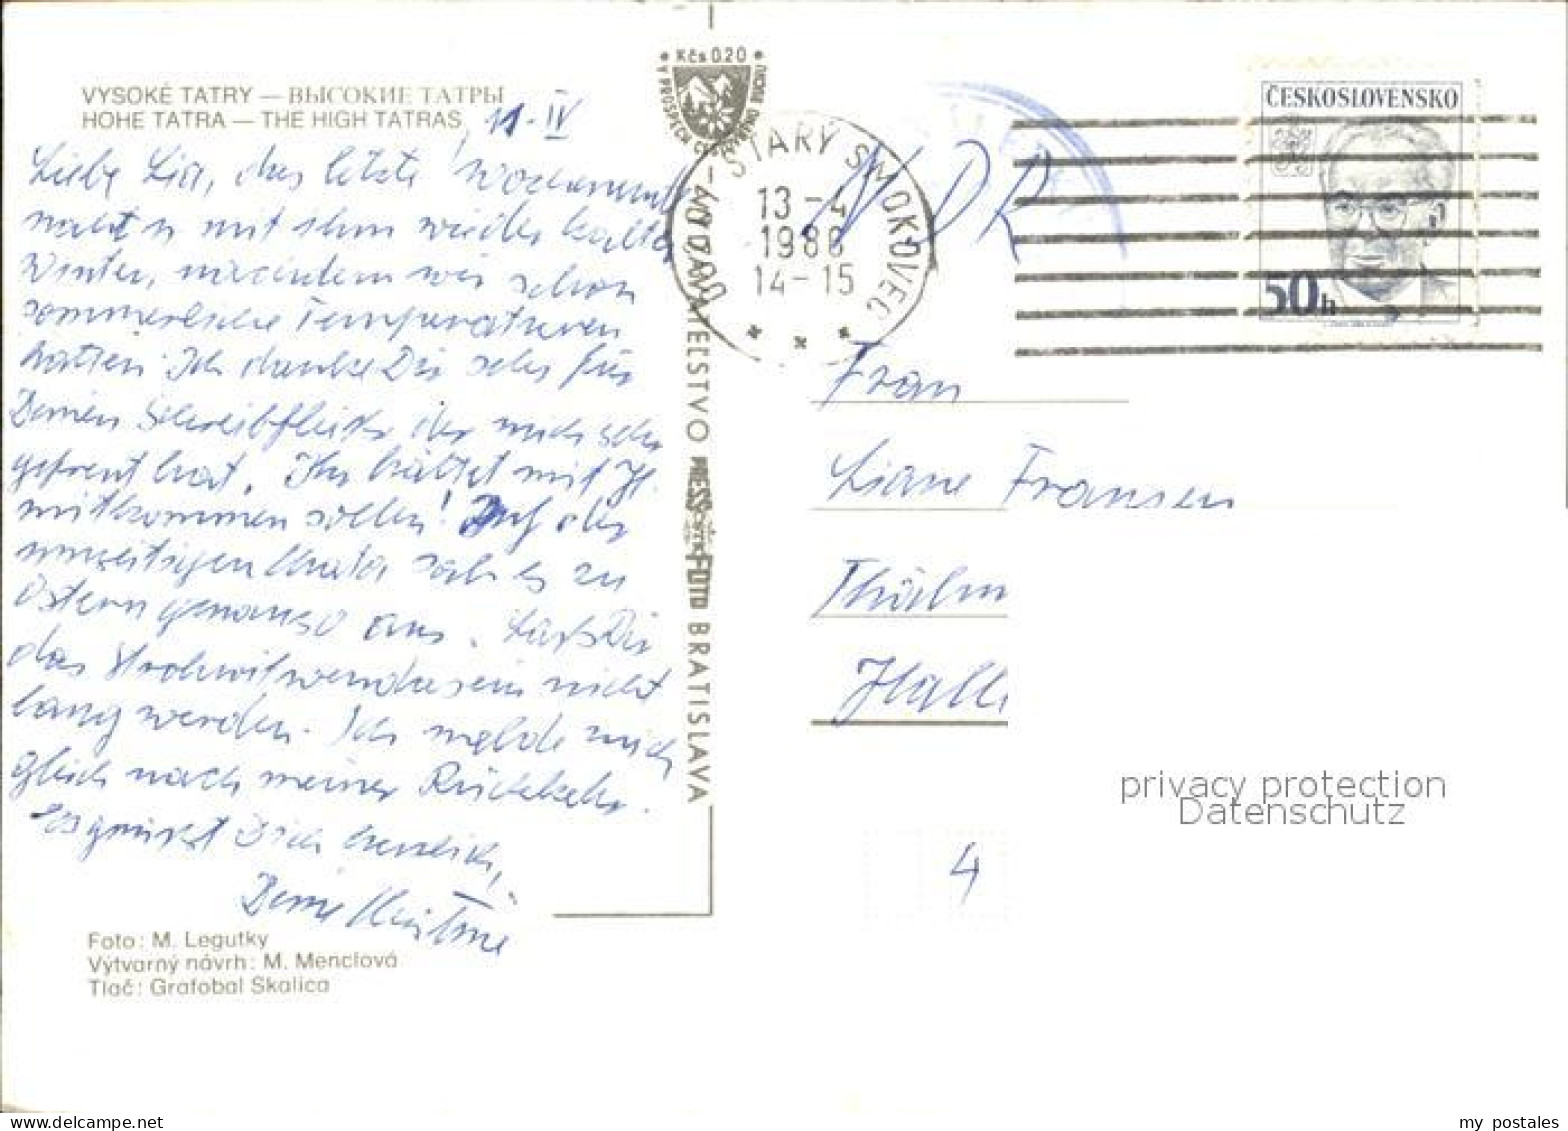 Kčs 0,20
VYSOKÉ TATRY — ВЫСОКИЕ ТАТРЫ
HOHE TATRA — THE HIGH TATRAS
11. IV
Liebe Lia, das letzte Wochenende
mit ihm wieder kaltes
Winter, nachdem wir schon
sommerliche Temperaturen
hatten. Ich danke Dir sehr für
Deinen Schreibfleiß, der mich sehr
gefreut hat. Ihr hättet mit H.
mitkommen sollen! Auf der
Chata sah es zu
Ostern genauso aus. Laß Dir
das Strohwitwendasein nicht
lang werden. Ich melde mich
gleich nach meiner Rückkehr.
Es grüßt Dich herzlich,
Deine Christine
Foto: M. Legutky
Výtvarný návrh: M. Menclová
Tlač: Grafobal Skalica
VYDAVATEĽSTVO PRESSFOTO BRATISLAVA
STARÝ SMOKOVEC
13-4
1988
14-15
NDR
ČESKOSLOVENSKO
50h
Frau
Liane Fransen
Thälm
Halle
privacy protection
Datenschutz
4
my postales